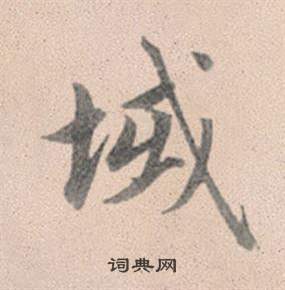 域
词典网